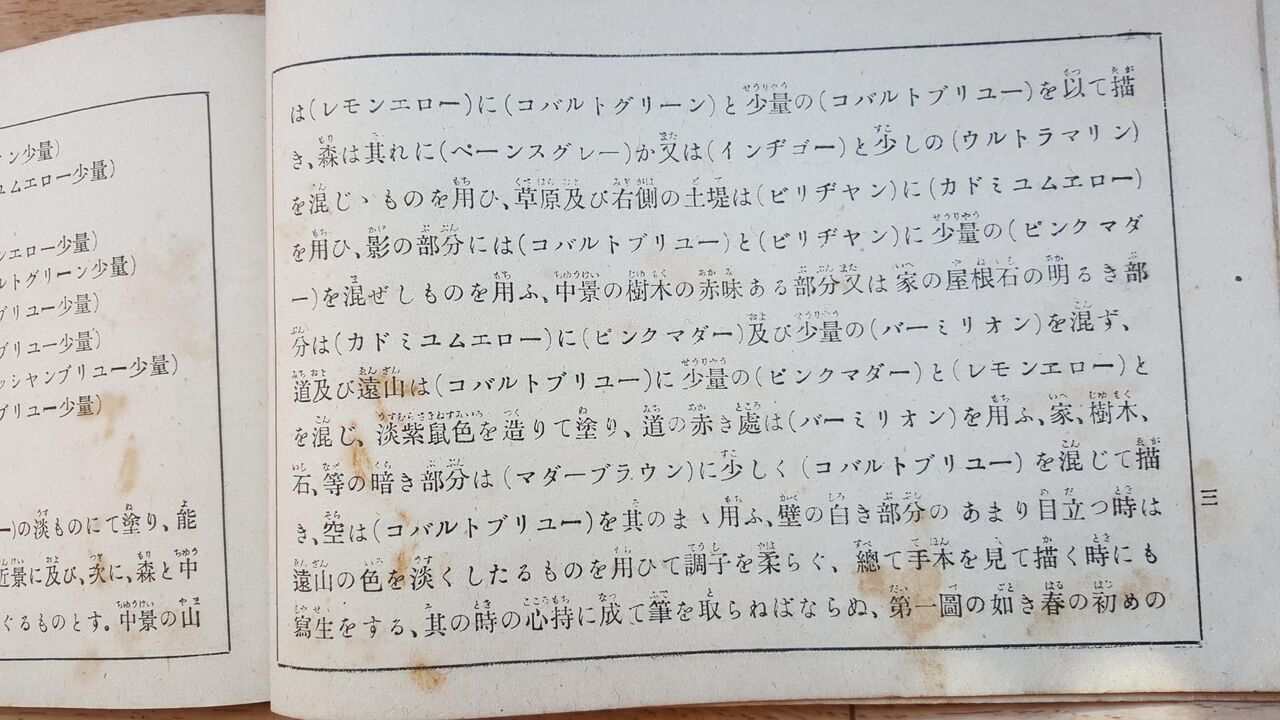 ン少量)
ユムエロー少量)
ンエロー少量)
ルトグリーン少量)
ブリユー少量)
ブリユー少量)
ッシヤンブリユー少量)
ブリユー少量)
ー)の淡ものにて塗り、能
近景に及び、次に、森と中
ぐるものとす。中景の山
は(レモンエロー)に(コバルトグリーン)と少量の(コバルトブリユー)を以て描
き、森は其れに(ペーンスグレー)か又は(インヂゴー)と少しの(ウルトラマリン)
を混じゝものを用ひ、草原及び右側の土堤は(ビリヂヤン)に(カドミユムエロー)
を用ひ、影の部分には(コバルトブリユー)と(ビリヂヤン)に少量の(ピンクマダ
ー)を混ぜしものを用ふ、中景の樹木の赤味ある部分又は家の屋根石の明るき部
分は(カドミユムエロー)に(ピンクマダー)及び少量の(バーミリオン)を混ず、
道及び遠山は(コバルトブリユー)に少量の(ピンクマダー)と(レモンエロー)と
を混じ、淡紫鼠色を造りて塗り、道の赤き處は(バーミリオン)を用ふ、家、樹木、
石、等の暗き部分は(マダーブラウン)に少しく(コバルトブリユー)を混じて描
き、空は(コバルトブリユー)を其のまゝ用ふ、壁の白き部分のあまり目立つ時は
遠山の色を淡くしたるものを用ひて調子を柔らぐ、總て手本を見て描く時にも
寫生をする、其の時の心持に成て筆を取らねばならぬ、第一圖の如き春の初めの
三